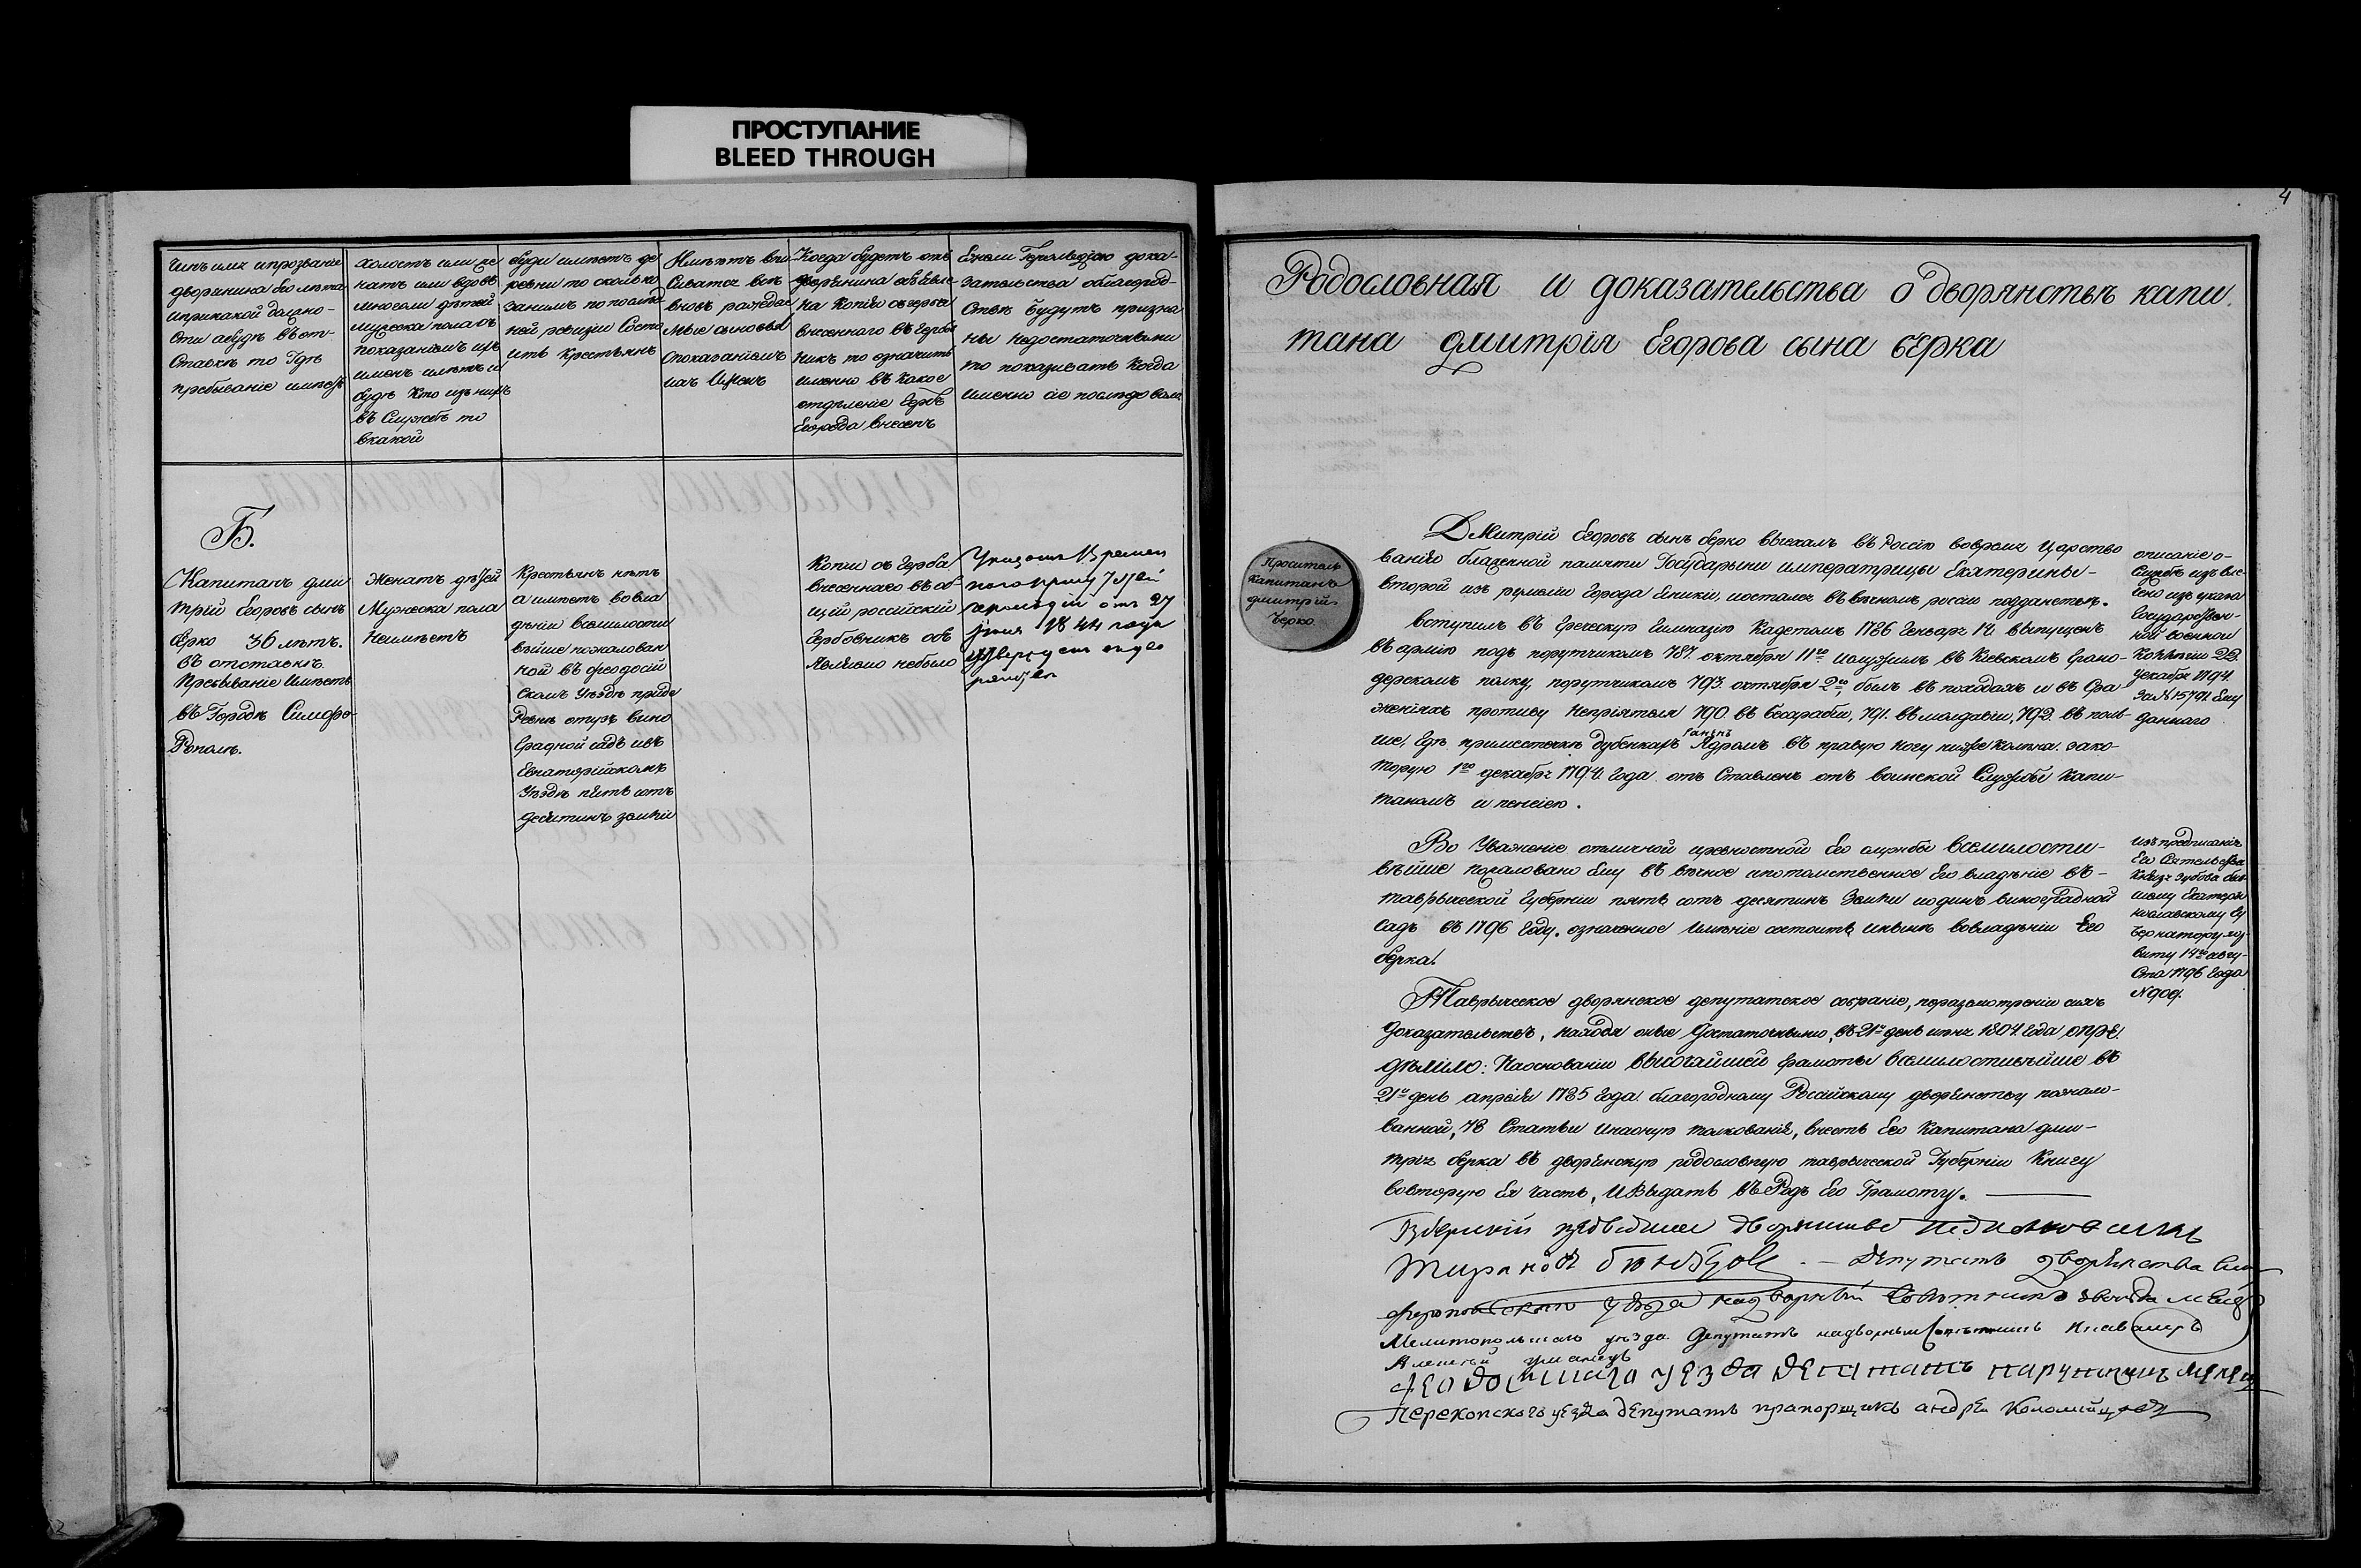 ПРОСТУПАНИЕ
BLEED THROUGH
4
Чинъ имя ипрозваніе
дворянина его лѣта
иприкакой должно-
сти абудѣ въ от-
ставкѣ то Гдѣ
пребываніе имѣетъ
холостъ или же
натъ или вдовъ
многоли дѣтей
мужеска пола съ
показаніемъ ихъ
именъ илѣтъ и
будѣ Кто изънихъ
въ Службѣ то
вкакой
буди имѣетъ де
ревни то сколько
занимъ по послѣд
ней ревизіи Состо
итъ Крестьянъ
вновь раждае
мые сыновья
споказаніемъ
ихъ Именъ
Когда будетъ отъ
дворянина
на Копія съгерба
внесеннаго въ Гербов
никъ то означить
именно въ какое
отдѣленіе Гербъ
Егорода внесенъ
Ежели Герольдіею дока-
зательства облагород-
ствѣ будутъ призна
ны недостаточными
то показывать Когда
именно сіе послѣдовало
Б.
Капитанъ дми
трій Егоровъ сынъ
берко 36 лѣтъ.
въ отставкѣ.
Пребываніе Имѣетъ
въ Городѣ Симфе-
рополѣ.
Женатъ дѣтей
Мужеска пола
Неимѣетъ
Крестьянъ нѣтъ
а имѣетъ вовла
дѣніи всемилости
вѣйше пожалован
ной въ феодосій
скомъ Уѣздѣ приде
ревнѣ отузъ вино
градной садъ ивъ
Евпаторійскомъ
Уѣздѣ пять сотъ
десятинъ земли
Копіи съ Герба
внесеннаго въ об-
щій россійскій
Гербовникъ объ
явлено небыло
Указомъ Времен
наго прису
герольдіи отъ 27
1844 года
Родословная и доказательства о дворянствѣ капи
тана дмитрія Егорова сына берка
Проситель
Капитанъ
дмитрій
берко
Дмитрій Егоровъ сынъ берко выехалъ въ Россію вовремя Царство
ванія блаженной памяти Государыни императрицы Екатерины-
второй изъ румеліи города Еникіи, иостался въ вѣчномъ россіи подданствѣ.
вступилъ въ Греческую Гимназію Кадетомъ 1786 Генваря 14 выпущенъ
въ армію подъ порутчикомъ 787. октября 11го ислужилъ въ Кіевскомъ Грено-
дерскомъ полку, порутчикомъ 793. октября 2го, былъ въ походахъ и въ Сра
женіяхъ противу Непріятеля 790. въ бесарабіи, 791. въ молдавіи, 792. въ поль-
ше, Гдѣ приместечкѣ дубенкахъ
раненъ
Ядромъ въ правую ногу ниже колѣна. зако-
торую 1го декабря 1794 года отъ Ставленъ отъ воинской Службы Капи-
таномъ и пенсіею.
описаніе о-
Службѣ изъ вы-
сено изъ указа
Государствен-
ной военной
Коллегіи 22
декабря 1794.
За № 15791. Ему
даннаго
Во Уваженіе отличной иревностной Его службы всемилости-
вѣйше пожаловано Ему въ вѣчное ипотомственное Его владѣніе въ-
таврической Губерніи пять сотъ десятинъ Земли иодинъ виноградной
Садъ въ 1796 Году. означенное Имѣніе состоитъ инынѣ вовладѣніи Его
берка!
изъ предписанія
Его Сіятельства
Князя Зубова быв-
шему Екатери
нославскому Гу
бернатору хор
вату 14го авгу-
ста 1796 Года
Таврическое дворянское депутатское собраніе, поразсмотреніи сихъ
Доказательствъ, находя оные достаточными, въ 21й день іюня 1804 Года опре-
дѣлило: Наоснованіи высочайшей Грамоты всемилостивѣйше въ
21й день апрѣля 1785 Года. благородному Россійскому дворянству пожало-
ванной, 78 Статьи Инаоную толкованія, внесть Его Капитана дми-
трія берка въ дворянскую родословную таврической Губерніи Книгу
вовторую Ея Часть, Ивыдать въ Родъ Его Грамоту.
Депутатъ дворянства Сим-
феропольскаго уѣзда надворный Совѣтникъ
Мелитопольскаго уѣзда депутатъ надворный Совѣтникъ икавалеръ
Алексѣй
Феодосійскаго уезда депутатъ
Перекопскаго уезда депутатъ прапорщикъ андрей Коломийцовъ